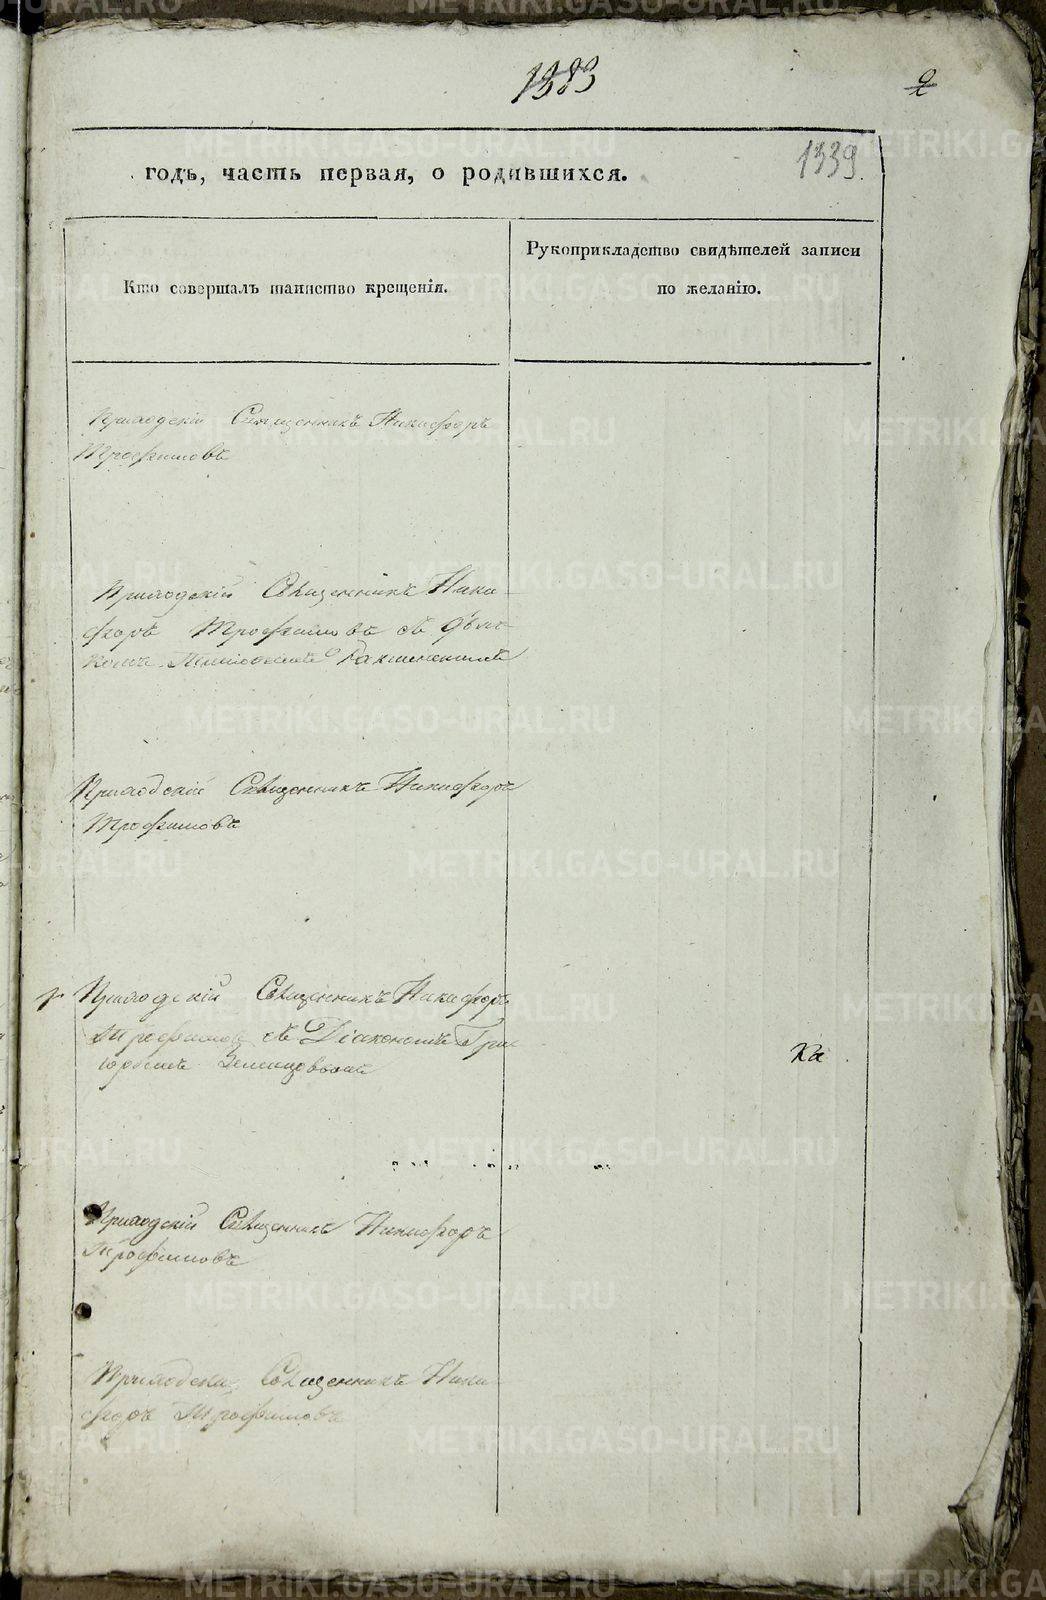 1383
2
1339.
годъ, часть первая, о родившихся.
Кто совершалъ таинство крещенія.
Рукоприкладство свидѣтелей записи
по желанію.
Приходскій Священникъ Никифоръ
Трофимовъ
Приходскій Священникъ Ники-
форъ Трофимовъ съ Дья-
комъ
Приходскій Священникъ Никифоръ
Трофимовъ
Приходскій Священникъ Никифоръ
Трофимовъ съ Діакономъ Гри-
горіемъ
Ка
Приходскій Священникъ Никифоръ
Трофимовъ
Приходскій Священникъ Ники-
форъ Трофимовъ
METRIKI.GASO-URAL.RU